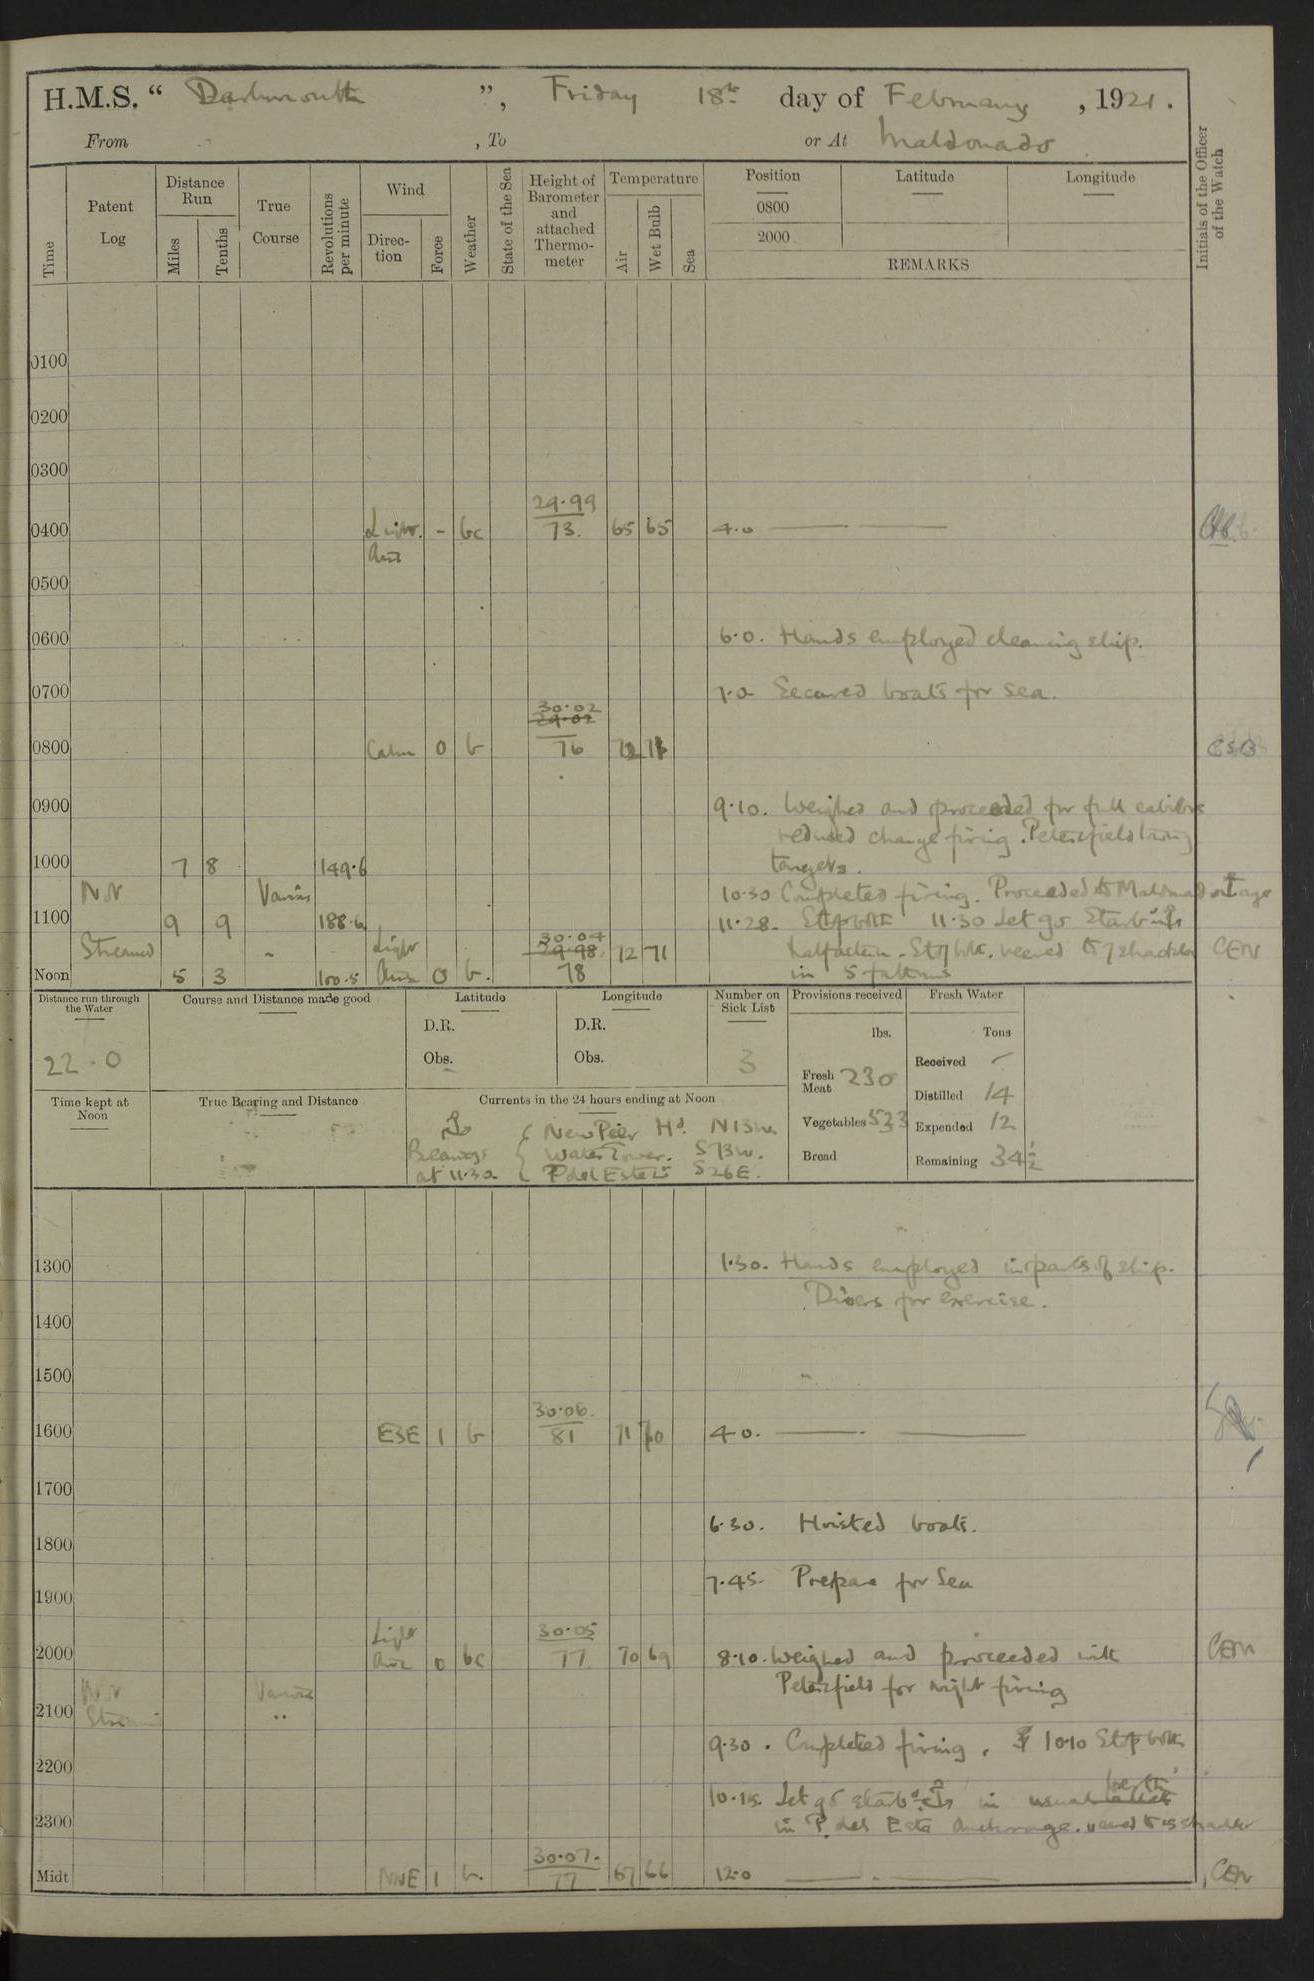 H.M.S. " Dartmouth ", Friday 18th day of February , 1921 .
From , To or At Maldonado
Time
Patent Log
Distance Run
Miles
Tenths
True Course
Revolutions per minute
Wind
Direction
Force
Weather
State of the Sea
Height of Barometer and attached Thermometer
Temperature
Air
Wet Bulb
Sea
Position
0800
2000
Latitude
Longitude
REMARKS
Initials of the Officer of the Watch
0100
0200
0300
29.99
0400 Light - bc 73. 65 65 4.0
Airs
0500
0600 6.0. Hands employed cleaning ship.
0700 7.0 Secured boats for sea.
30.02
29.02
0800 Calm 0 b 76 CSB
0900 9.10. Weighed and proceeded for full calibre
reduced charge firing. Petersfield towing
1000 7 8 149.6 targets.
NN Various 10.30 Completed firing. Proceeded to Maldonado
1100 9 9 188.6 11.28. Stop both 11.30 Let go Starbd
Streamed " Light 30.04 29.98 72 71 veered to 7 shackles CEN
Noon 5 3 100.5 Airs 0 b. 78 in 5 fathoms
Distance run through the Water
22.0
Course and Distance made good
Latitude
D.R.
Obs.
Longitude
D.R.
Obs.
Number on Sick List
3
Provisions received
lbs.
Fresh Meat 230
Vegetables 533
Bread
Fresh Water
Tons
Received -
Distilled 14
Expended 12
Remaining 34½
Time kept at Noon
True Bearing and Distance
Currents in the 24 hours ending at Noon
Bearings at 11.30
New Pier Hd. N13W.
Water Tower. S73W.
P del Este Lt S26E.
1300 1.30. Hands employed in parts of ship.
Divers for exercise.
1400
1500
30.06.
1600 ESE 1 b 81 71 70 4.0.
1700
6.30. Hoisted boats.
1800
7.45. Prepare for Sea
1900
Light 30.05
2000 Airs 0 bc 77 70 69 8.10. Weighed and proceeded with CEN
NN Various Petersfield for night firing
2100 Streamed "
9.30. Completed firing. 10.10 Stop both
2200
10.15. Let go starbd in usual berth
2300 in P. del Este Anchorage. veered to shackles
30.07.
Midt NNE 1 b. 77 67 66 12.0 CEN